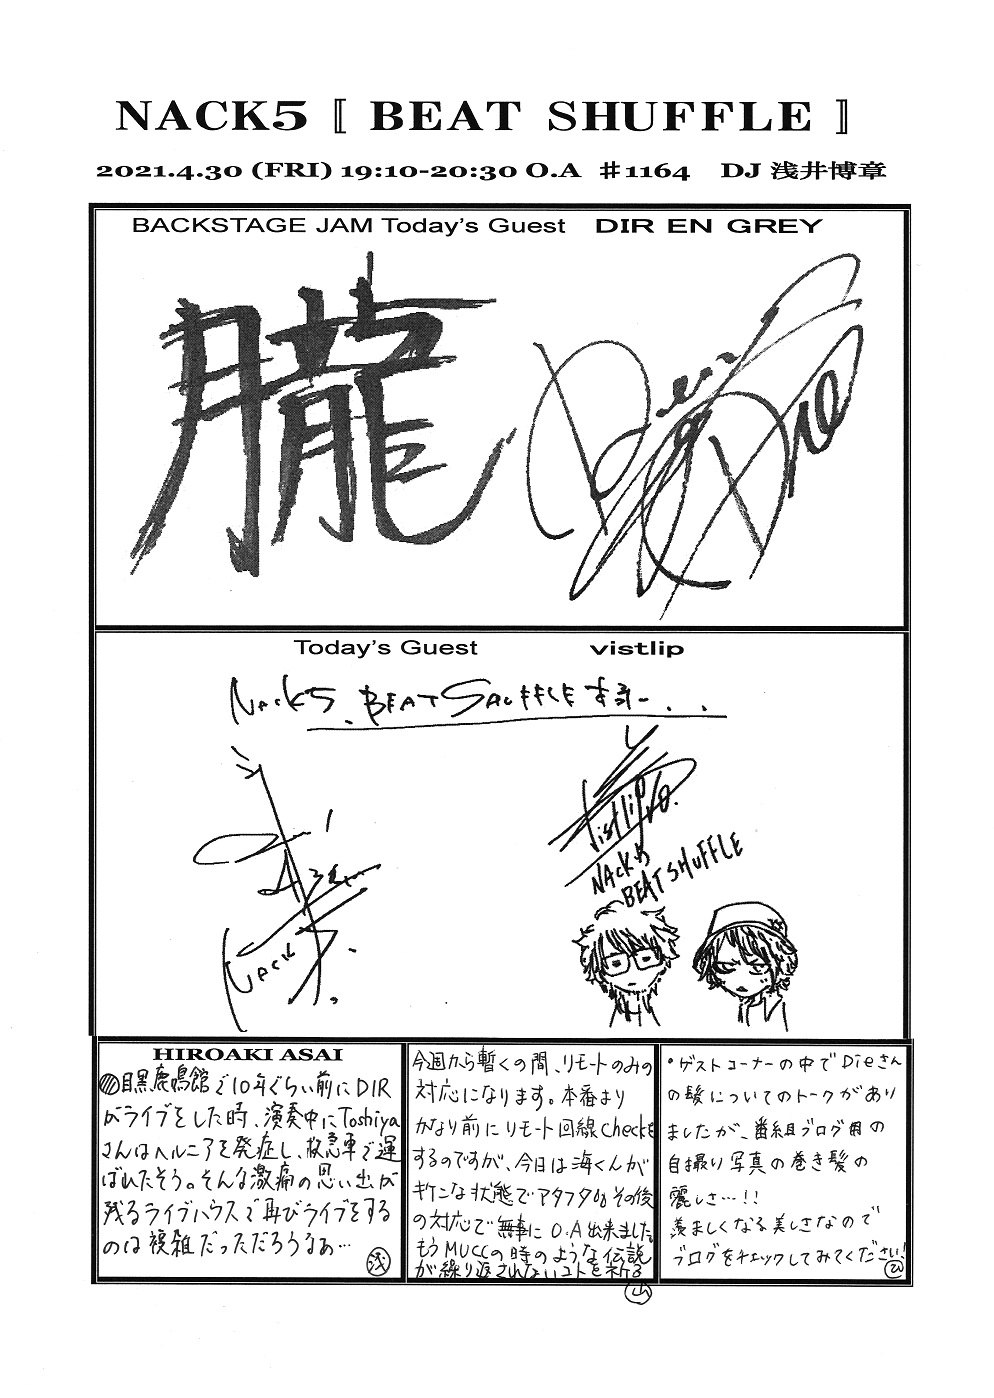 NACK5 〚 BEAT SHUFFLE 〛
2021.4.30 (FRI) 19:10-20:30 O.A ♯1164 DJ 浅井博章
BACKSTAGE JAM Today's Guest DIR EN GREY
朧
Die
Today's Guest vistlip
NACK5 BEAT SHUFFLE
vistlip
NACK5
BEAT SHUFFLE
NACK5.
HIROAKI ASAI
目黒鹿鳴館で10年ぐらい前にDIR
がライブをした時、演奏中にToshiya
さんはヘルニアを発症し、救急車で運
ばれたそう。そんな激痛の思い出が
残るライブハウスで再びライブをする
のは複雑だっただろうなぁ…
浅
今週から暫くの間、リモートのみの
対応になります。本番より
かなり前にリモート回線checkを
するのですが、今日は海くんが
キケンな状態でアタフタ その後
の対応で無事にO.A出来ました。
もうMUCCの時のような伝説
が繰り返されないコトを祈る
山
・ゲストコーナーの中でDieさん
の髪についてのトークがあり
ましたが、番組ブログ用の
自撮り写真の巻き髪の
麗しさ…!!
羨ましくなる美しさなので
ブログをチェックしてみてください!
ひ